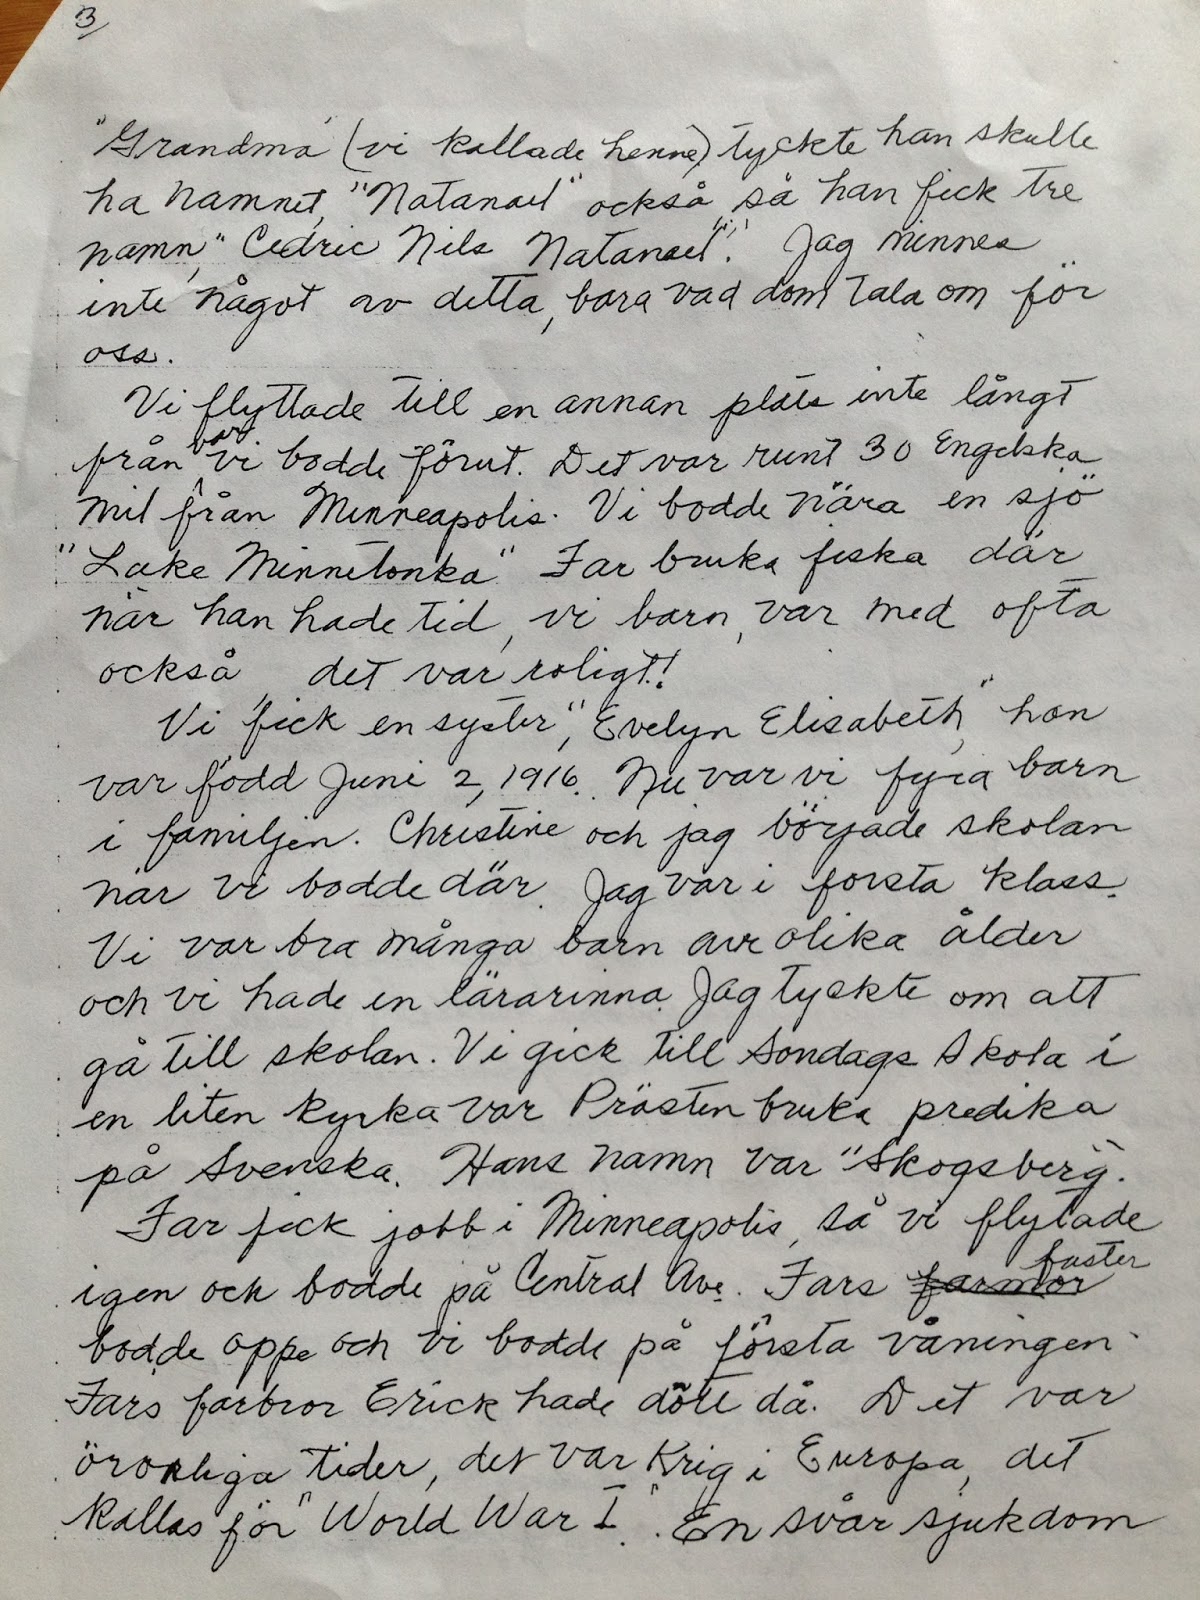 3
"Grandma" (vi kallade henne) tyckte han skulle
ha namnet, "Natanael" också, så han fick tre
namn, "Cedric Nils Natanael". Jag minnes
inte något av detta, bara vad dom tala om för
oss.
Vi flyttade till en annan plats inte långt
från var vi bodde förut. Det var runt 30 Engelska
mil från Minneapolis. Vi bodde nära en sjö
"Lake Minnetonka" Far bruka fiska där
när han hade tid, vi barn, var med ofta
också, det var roligt!
Vi fick en syster, "Evelyn Elisabeth," hon
var född Juni 2, 1916. Nu var vi fyra barn
i familjen. Christine och jag började skolan
när vi bodde där. Jag var i första klass.
Vi var bra många barn av olika ålder
och vi hade en lärarinna. Jag tyckte om att
gå till skolan. Vi gick till Söndags Skola i
en liten kyrka var Prästen bruka predika
på Svenska. Hans namn var "Skogsberg".
Far fick jobb i Minneapolis, så vi flytade
igen och bodde på Central Ave. Fars farmor faster
bodde oppe och vi bodde på första våningen.
Fars farbror Erick hade dött då. Det var
oroliga tider, det var Krig i Europa, det
kallas för "World War I". En svår sjukdom